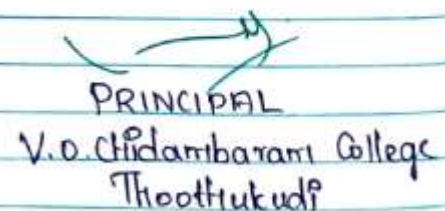 PRINCIPAL
V.O. Chidambaram College
Thoothukudi